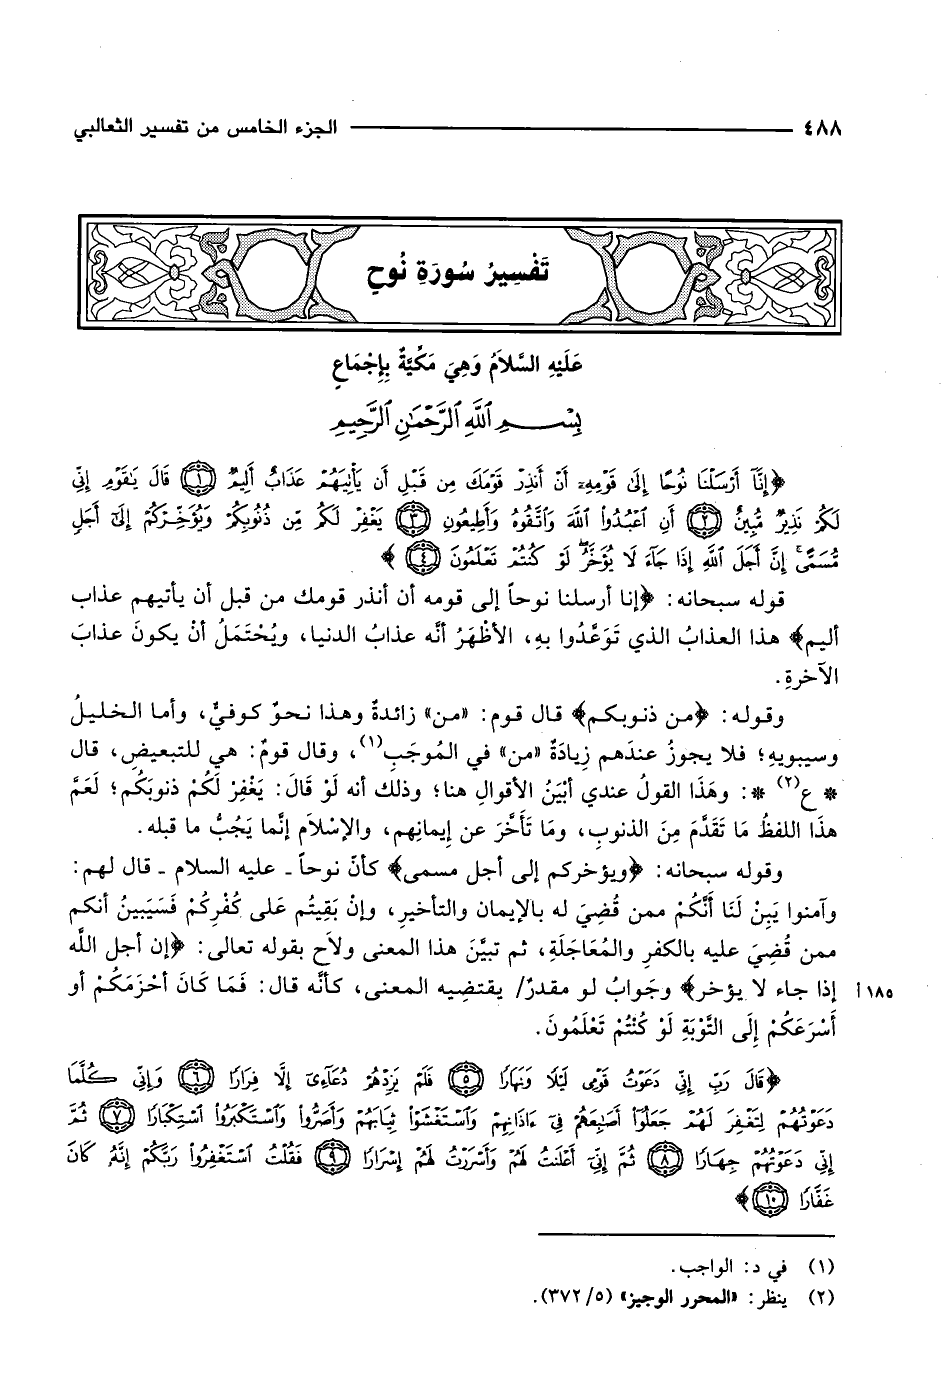 ٤٨٨ ــــــــــــــــــــ الجزء الخامس من تفسير الثعالبي
تَفْسِيرُ سُورَةِ نُوحٍ
عَلَيْهِ السَّلاَمُ وَهِيَ مَكِّيَّةٌ بِإِجْمَاعٍ
بِسْمِ ٱللَّهِ ٱلرَّحْمَٰنِ ٱلرَّحِيمِ
﴿إِنَّآ أَرْسَلْنَا نُوحًا إِلَىٰ قَوْمِهِۦٓ أَنْ أَنذِرْ قَوْمَكَ مِن قَبْلِ أَن يَأْتِيَهُمْ عَذَابٌ أَلِيمٌ ﴿١﴾ قَالَ يَٰقَوْمِ إِنِّي
لَكُمْ نَذِيرٌ مُّبِينٌ ﴿٢﴾ أَنِ ٱعْبُدُوا۟ ٱللَّهَ وَٱتَّقُوهُ وَأَطِيعُونِ ﴿٣﴾ يَغْفِرْ لَكُم مِّن ذُنُوبِكُمْ وَيُؤَخِّرْكُمْ إِلَىٰٓ أَجَلٍ
مُّسَمًّى إِنَّ أَجَلَ ٱللَّهِ إِذَا جَآءَ لَا يُؤَخَّرُ لَوْ كُنتُمْ تَعْلَمُونَ ﴿٤﴾ ﴾
قوله سبحانه: ﴿إنا أرسلنا نوحاً إلى قومه أن أنذر قومك من قبل أن يأتيهم عذاب
أليم﴾ هذا العذابُ الذي تَوَعَّدُوا بهِ، الأظْهَرُ أنَّه عذابُ الدنيا، ويُحْتَمَلُ أنْ يكونَ عذابَ
الآخرةِ.
وقوله: ﴿من ذنوبكم﴾ قال قوم: «من» زائدةٌ وهذا نحوٌ كوفيٌّ، وأما الخليلُ
وسيبويهِ؛ فلا يجوزُ عندَهم زِيَادَةُ «من» في المُوجَبِ(١)، وقال قومٌ: هي للتبعيضِ، قال
* ع(٢) *: وهَذَا القولُ عندي أبْيَنُ الأقوالِ هنا؛ وذلك أنه لَوْ قَالَ: يَغْفِرْ لَكُمْ ذنوبَكُم؛ لَعَمَّ
هذَا اللفظُ مَا تَقَدَّمَ مِنَ الذنوبِ، ومَا تَأَخَّرَ عن إيمانِهم، والإسْلاَم إنَّما يَجُبُّ ما قبله.
وقوله سبحانه: ﴿ويؤخركم إلى أجل مسمى﴾ كأنّ نوحاً - عليه السلام - قال لهم:
وآمنوا يَبِنْ لَنَا أَنَّكُمْ ممن قُضِيَ له بالإيمان والتأخيرِ، وإنْ بَقِيتُم عَلى كُفْرِكُمْ فَسَيَبينُ أنكم
ممن قُضِيَ عليه بالكفرِ والمُعَاجَلَةِ، ثم تبيَّنَ هذا المعنى ولاَح بقوله تعالى: ﴿إن أجل اللَّه
١٨٥ أ إذا جاء لا يؤخر﴾ وجوابُ لو مقدرٌ/ يقتضِيه المعنى، كأنَّه قال: فَمَا كَانَ أحْزَمَكُمْ أو
أَسْرَعَكُمْ إِلَى التَّوْبَةِ لَوْ كُنْتُمْ تَعْلَمُونَ.
﴿قَالَ رَبِّ إِنِّي دَعَوْتُ قَوْمِي لَيْلًا وَنَهَارًا ﴿٥﴾ فَلَمْ يَزِدْهُمْ دُعَآءِىٓ إِلَّا فِرَارًا ﴿٦﴾ وَإِنِّي كُلَّمَا
دَعَوْتُهُمْ لِتَغْفِرَ لَهُمْ جَعَلُوٓا۟ أَصَٰبِعَهُمْ فِيٓ ءَاذَانِهِمْ وَٱسْتَغْشَوْا۟ ثِيَابَهُمْ وَأَصَرُّوا۟ وَٱسْتَكْبَرُوا۟ ٱسْتِكْبَارًا ﴿٧﴾ ثُمَّ
إِنِّي دَعَوْتُهُمْ جِهَارًا ﴿٨﴾ ثُمَّ إِنِّيٓ أَعْلَنتُ لَهُمْ وَأَسْرَرْتُ لَهُمْ إِسْرَارًا ﴿٩﴾ فَقُلْتُ ٱسْتَغْفِرُوا۟ رَبَّكُمْ إِنَّهُۥ كَانَ
غَفَّارًا ﴿١٠﴾﴾
(١) في د: الواجب.
(٢) ينظر: «المحرر الوجيز» (٥/ ٣٧٢).